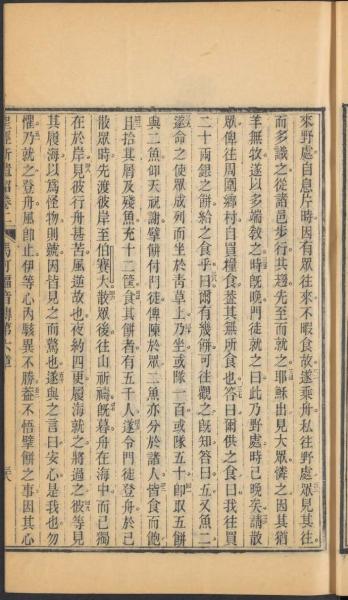 來野處自息片時因有眾往來不暇食故遂乘舟私往野處眾見其往
而多識之從諸邑步行共趨先至而就之耶穌出見大眾憐之因其猶
羊無牧遂以多端教之時既晚門徒就之曰此乃野處時已晚矣請散
眾俾往周圍鄉村自買糧食葢其無所食也答曰爾供之食曰我往買
二十兩銀之餅給之食乎曰爾有幾餅可往觀之既知答曰五又魚二
遂命之使眾成列而坐於靑草上乃坐或隊一百或隊五十卽取五餅
與二魚仰天祝謝擘餅付門徒俾陳於眾二魚亦分於諸人皆食而飽
且拾其屑及殘魚充十二筐食其餅者有五千人遂令門徒登舟於己
散眾時先渡彼岸至伯賽大散眾後往山祈禱既暮舟在海中而己獨
在於岸見彼行舟甚苦風逆故也夜約四更履海就之將過之彼等見
其履海以為怪物則號因皆見之而驚也遂與之言曰安心是我也勿
懼乃就之登舟風卽止伊等心內駭異不勝葢不悟擘餅之事因其心
馬可福音傳第六章